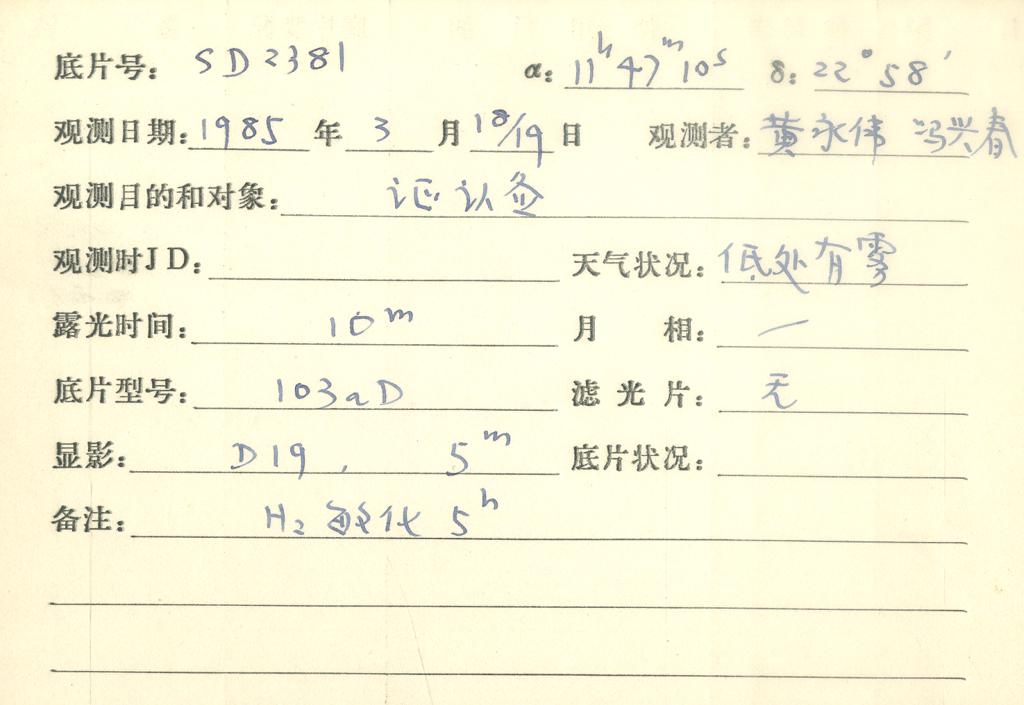 底片号: SD2381 α: 11ʰ47ᵐ10ˢ δ: 22°58′
观测日期: 1985 年 3 月 18/19 日 观测者: 黄永伟 冯兴春
观测目的和对象: 证认
观测时JD: 天气状况: 低处有雾
露光时间: 10ᵐ 月 相: —
底片型号: 103aD 滤光片: 无
显影: D19, 5ᵐ 底片状况:
备注: H₂ 敏化 5ʰ